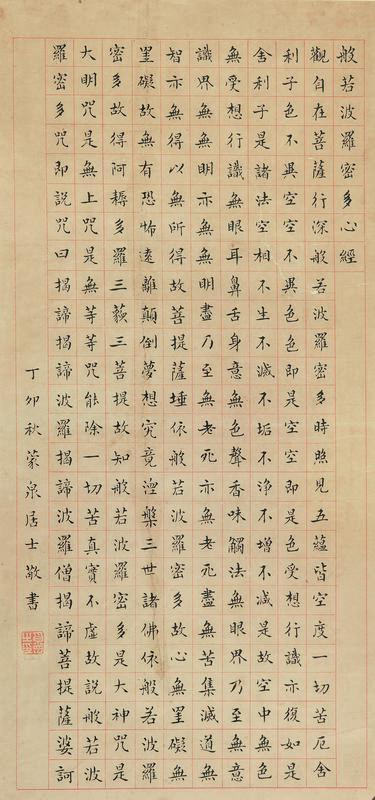 般若波羅密多心經
觀自在菩薩行深般若波羅密多時照見五蘊皆空度一切苦厄舍
利子色不異空空不異色色即是空空即是色受想行識亦復如是
舍利子是諸法空相不生不滅不垢不淨不增不減是故空中無色
無受想行識無眼耳鼻舌身意無色聲香味觸法無眼界乃至無意
識界無無明亦無無明盡乃至無老死亦無老死盡無苦集滅道無
智亦無得以無所得故菩提薩埵依般若波羅密多故心無罣礙無
罣礙故無有恐怖遠離顛倒夢想究竟涅槃三世諸佛依般若波羅
密多故得阿耨多羅三藐三菩提故知般若波羅密多是大神咒是
大明咒是無上咒是無等等咒能除一切苦真實不虛故說般若波
羅密多咒即說咒曰揭諦揭諦波羅揭諦波羅僧揭諦菩提薩婆訶
丁卯秋蒙泉居士敬書